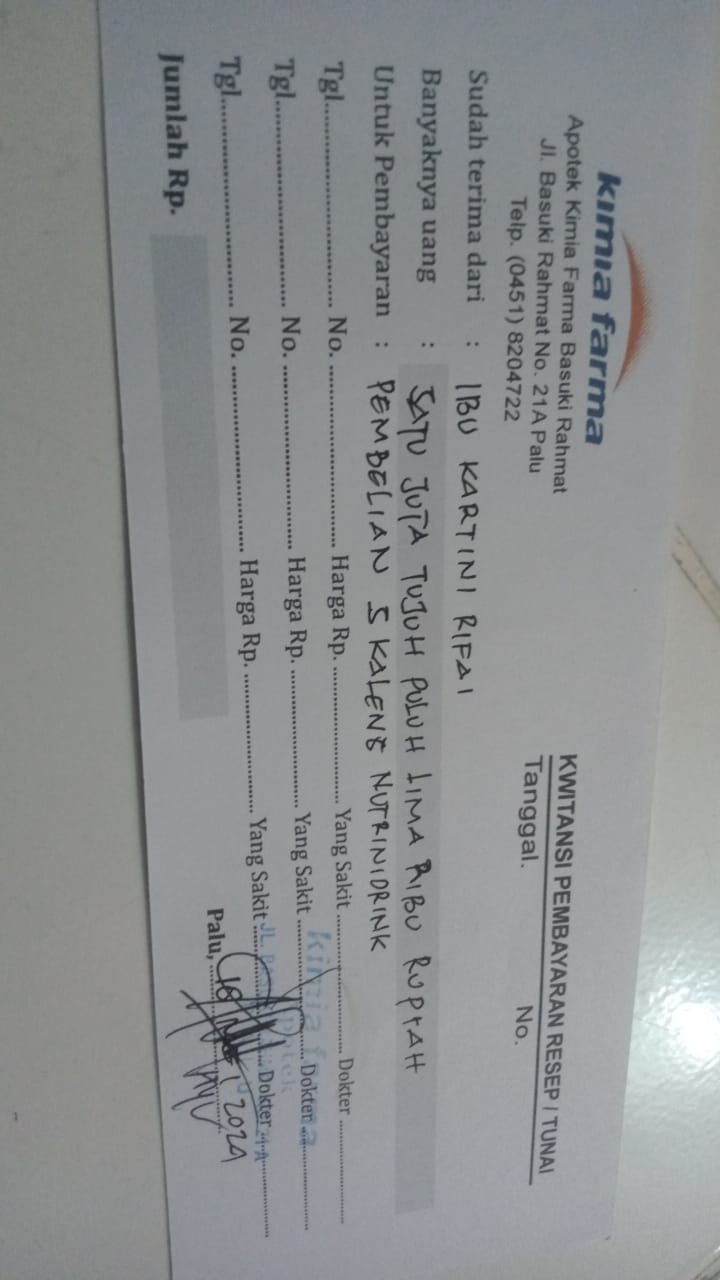 kimia farma
Apotek Kimia Farma Basuki Rahmat
Jl. Basuki Rahmat No. 21A Palu
Telp. (0451) 8204722
KWITANSI PEMBAYARAN RESEP / TUNAI
Tanggal. No.
Sudah terima dari : IBU KARTINI RIFAI
Banyaknya uang : SATU JUTA TUJUH PULUH LIMA RIBU RUPIAH
Untuk Pembayaran : PEMBELIAN 5 KALENG NUTRINIDRINK
Tgl............................ No. ............................ Harga Rp. ...................... Yang Sakit ...................... Dokter ......................
Tgl............................ No. ............................ Harga Rp. ...................... Yang Sakit ...................... Dokter ......................
Tgl............................ No. ............................ Harga Rp. ...................... Yang Sakit ...................... Dokter ......................
kimia farma
JL.
Palu, 2024
Jumlah Rp.